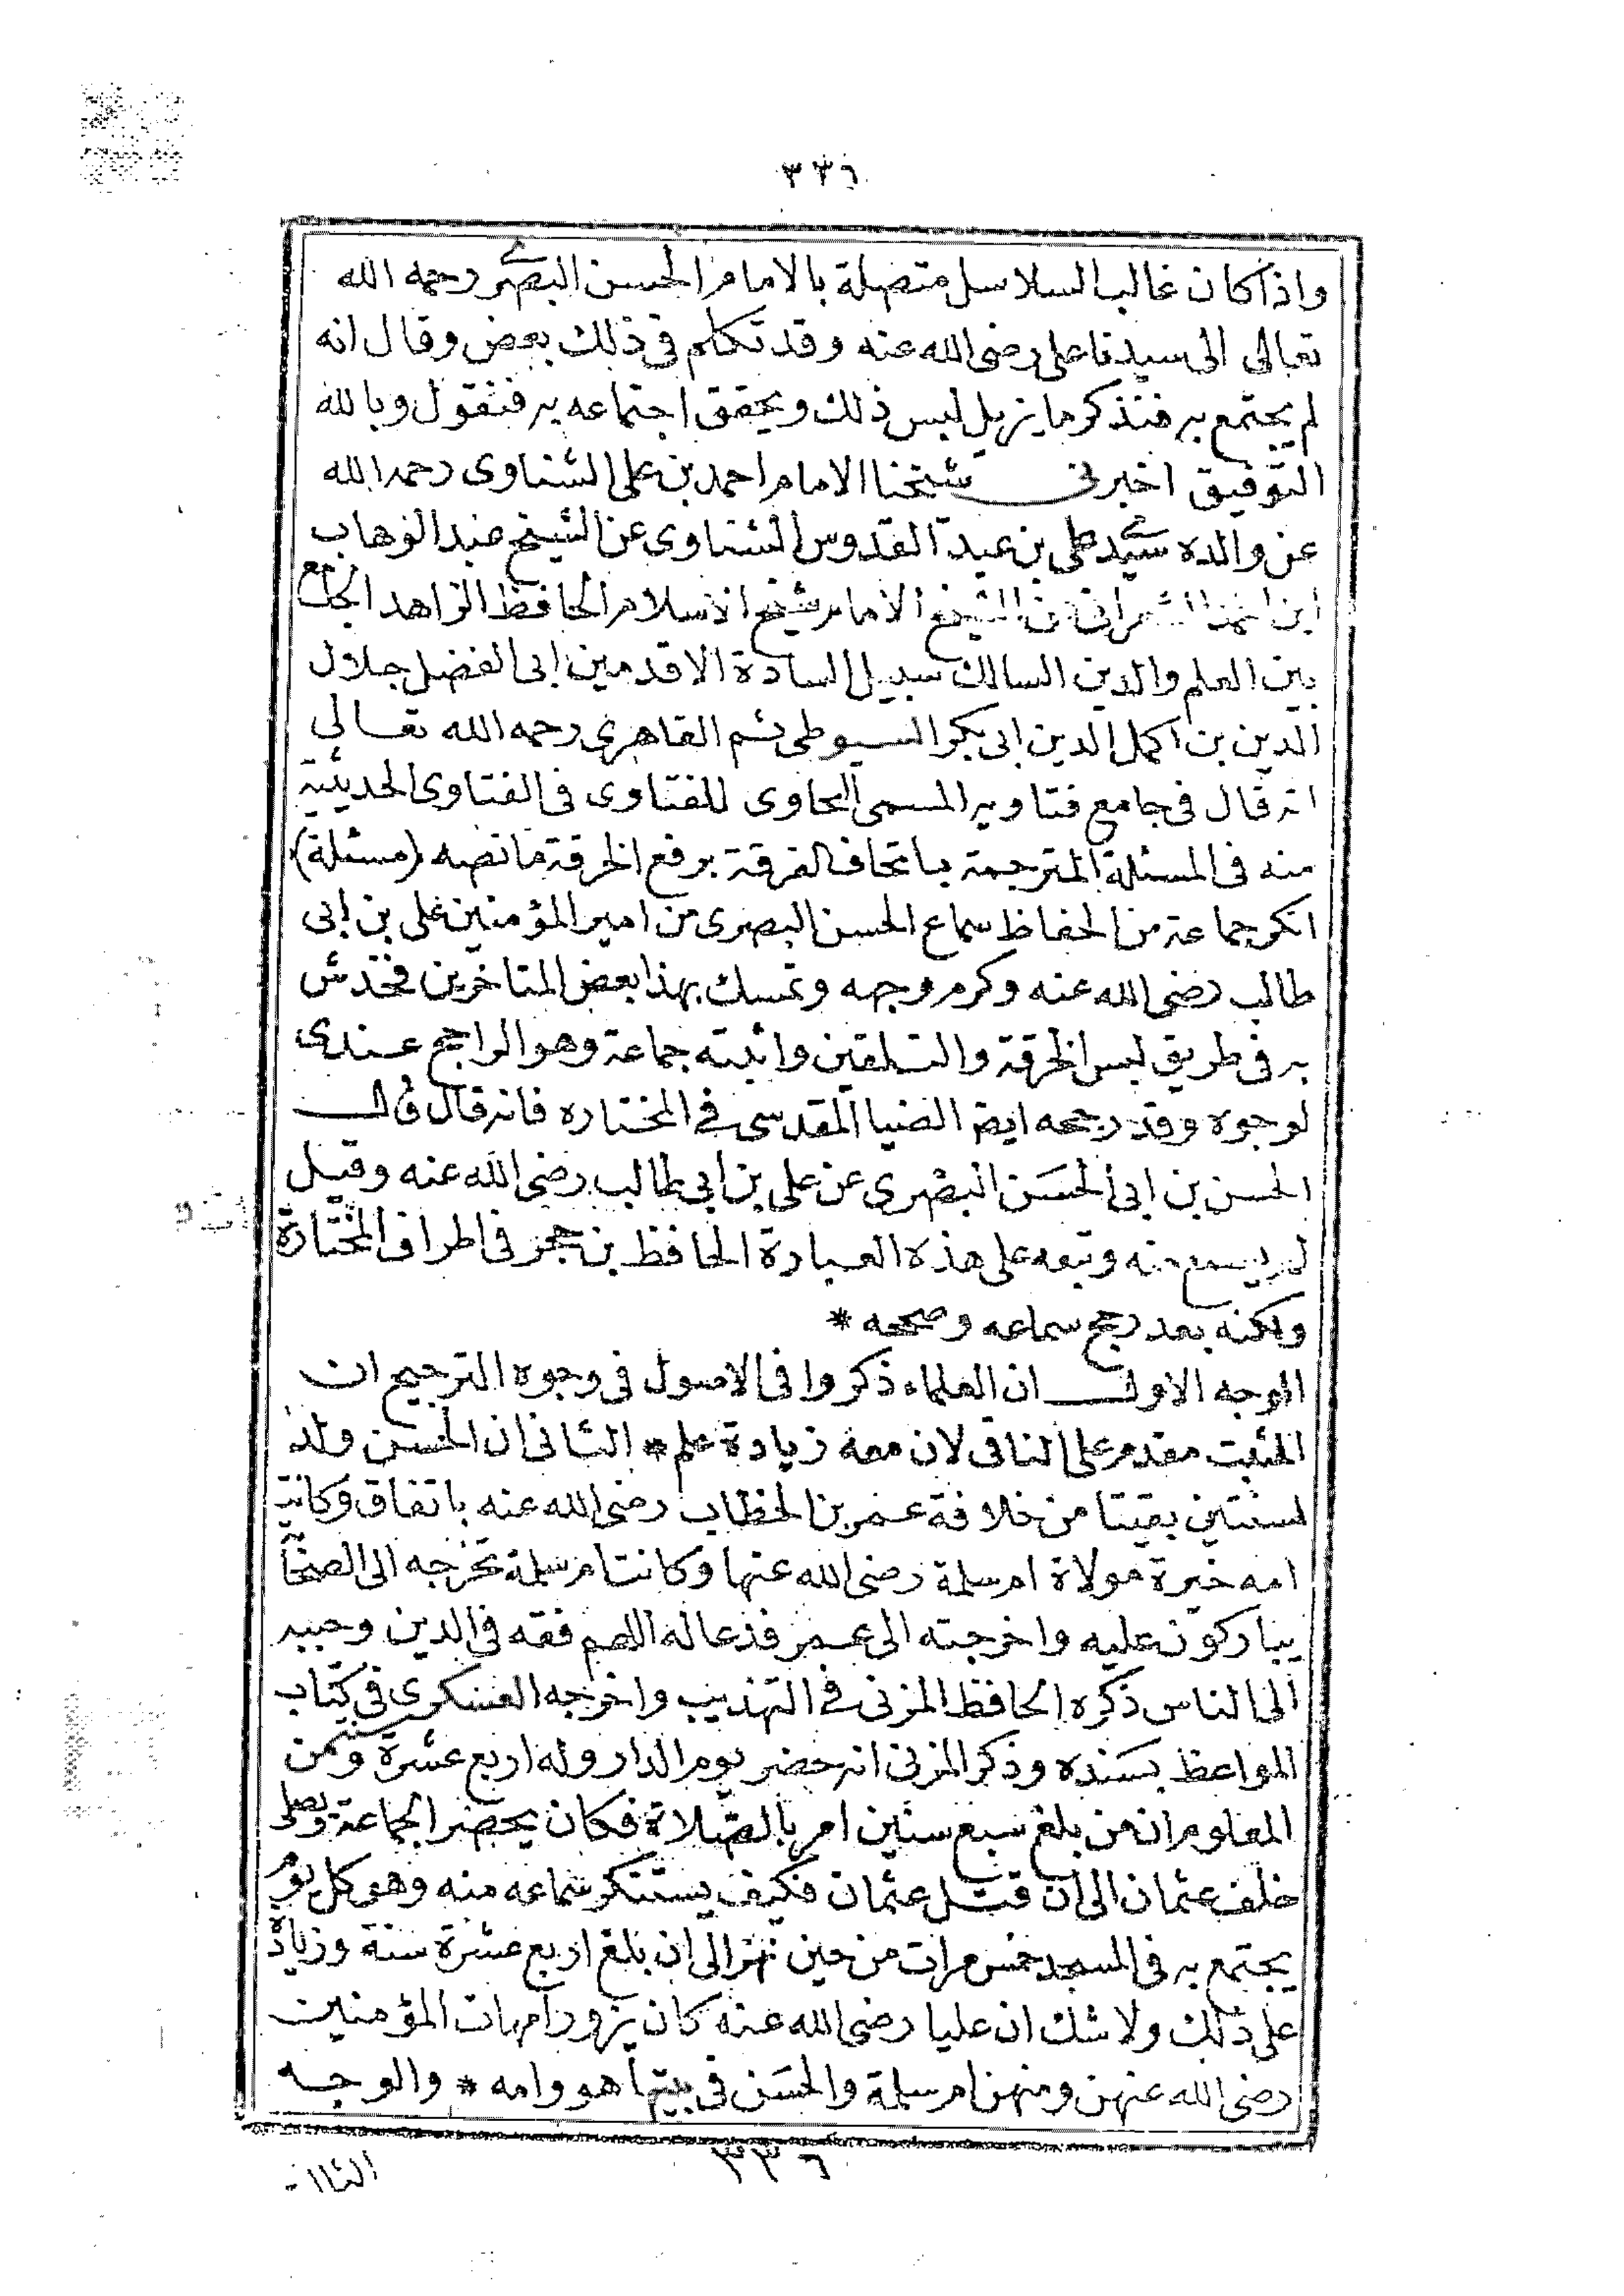 ٣٣٦
واذا كان غالب السلاسل متصلة بالامام الحسن البصرى رحمه الله
تعالى الى سيدنا على رضى الله عنه وقد تكلم فى ذلك بعض وقال انه
لم يجتمع به فنذكر ما يزيل لبس ذلك ويحقق اجتماعه به فنقول وبالله
التوفيق اخبرنى شيخنا الامام احمد بن على الشناوى رحمه الله
عن والده سيدى على بن عبد القدوس الشناوى عن الشيخ عبد الوهاب
ابن احمد الشعرانى عن الشيخ الامام شيخ الاسلام الحافظ الزاهد الجامع
بين العلم والدين السالك سبيل السادة الاقدمين ابى الفضل جلال
الدين بن اكمل الدين ابى بكر السيوطى ثم القاهرى رحمه الله تعالى
انه قال فى جامع فتاويه المسمى الحاوى للفتاوى فى الفتاوى الحديثية
منه فى المسئلة المترجمة باتحاف الفرقة برفع الخرقة مانصه (مسئلة)
انكر جماعة من الحفاظ سماع الحسن البصرى من امير المؤمنين على بن ابى
طالب رضى الله عنه وكرم وجهه وتمسك بهذا بعض المتاخرين فخدش
به فى طريق لبس الخرقة والتلقين واثبته جماعة وهو الراجح عندى
لوجوه وقد رجحه ايضا الضيا المقدسى فى المختاره فانه قال قال
الحسن بن ابى الحسن البصرى عن على بن ابى طالب رضى الله عنه وقيل
لم يسمع منه وتبعه على هذه العبارة الحافظ بن حجر فى اطراف المختارة
ولكنه بعد رجح سماعه وصححه *
الوجه الاول ان العلماء ذكروا فى الاصول فى وجوه الترجيح ان
المثبت مقدم على النافى لان معه زيادة علم * الثانى ان الحسن ولد
لسنتين بقيتا من خلافة عمر بن الخطاب رضى الله عنه باتفاق وكانت
امه خيرة مولاة ام سلمة رضى الله عنها وكانت ام سلمة تخرجه الى الصحابة
يباركون عليه واخرجته الى عمر فدعا له اللهم فقه فى الدين وحببه
الى الناس ذكره الحافظ المزنى فى التهذيب واخرجه العسكرى فى كتاب
المواعظ بسنده وذكر المزنى انه حضر يوم الدار وله اربع عشرة ومن
المعلوم ان من بلغ سبع سنين امر بالصلاة فكان يحضر الجماعة ويصلى
خلف عثمان الى ان قتل عثمان فكيف يستنكر سماعه منه وهو كل يوم
يجتمع به فى المسجد خمس مرات من حين الى ان بلغ اربع عشرة سنة وزيادة
على ذلك ولا شك ان عليا رضى الله عنه كان يزور امهات المؤمنين
رضى الله عنهن ومنهن ام سلمة والحسن فى بيتها هو وامه * والوجه
٣٣٦